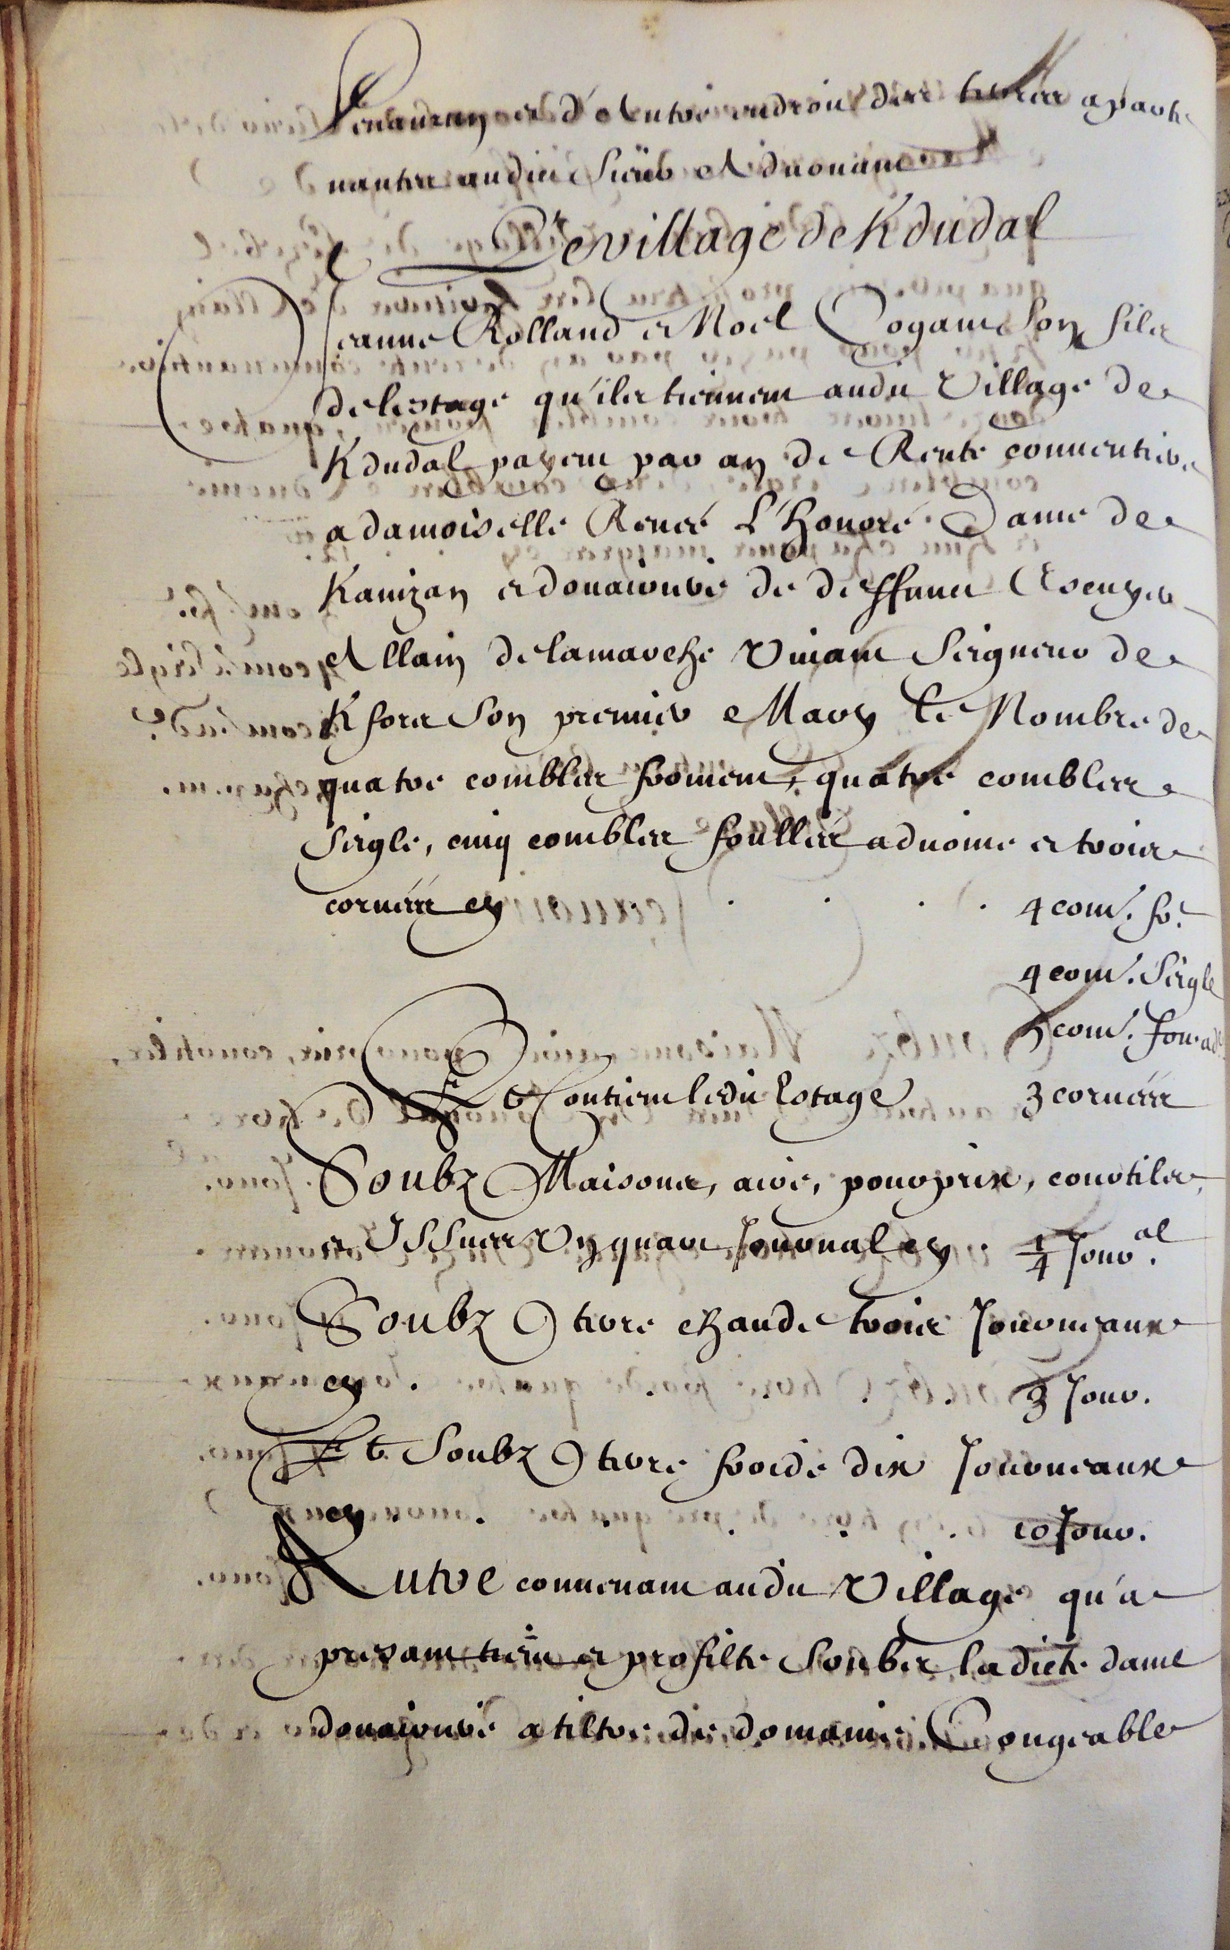 Tenant en d'autre endroit des terres aparte
nantes audict Sieur et advenant
Le village de Kdudal
Jeanne Rolland et Noel Cogant son filz
de lestage qu'ils tiennent audit Village de
Kdudal payent par an de Rente conventive
a damoiselle Renee L'Honoré Dame de
Kanizan et douairiere de deffunct Escuyer
Allain de lamarche vivant Seigneur de
Kfors son premier Mary le Nombre de
quatre combles froment, quatre combles
seigle, cinq combles foullées advoine et trois
corvées cy . . . . 4 com. fo.t
4 com. seigle
5 com. fou. ad.
Et Contient ledit Estage 3 corvées
Soubz Maisons, aire, pourprix, courtils
et Issues Un quart Journal cy 1/4 Jour.al
Soubz terre chaude trois Journeaux
cy . . . . . 3 Jour.
Et Soubz terre froide dix Journeaux
cy . . . . . 10 Jour.
Autre convenant audit Village qu'a
presant tient et profilte soubz ladicte dame
douairiere a tiltre de domaine Congeable